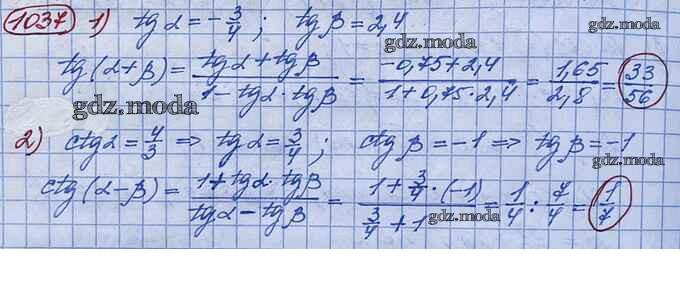 1037 1) tg α = -3/4 ; tg β = 2,4
gdz.moz
tg(α+β) = (tg α + tg β)/(1 - tg α · tg β) = (-0,75+2,4)/(1+0,75·2,4) = 1,65/2,8 = 33/56
gdz.moz
gdz.moz
gdz.moz
2) ctg α = 4/3 => tg α = 3/4 ; ctg β = -1 => tg β = -1
gdz.moz
gdz.moz
ctg(α-β) = (1 + tg α · tg β)/(tg α - tg β) = (1 + 3/4 · (-1))/(3/4 + 1) = 1/4 : 7/4 = 1/7
gdz.moz